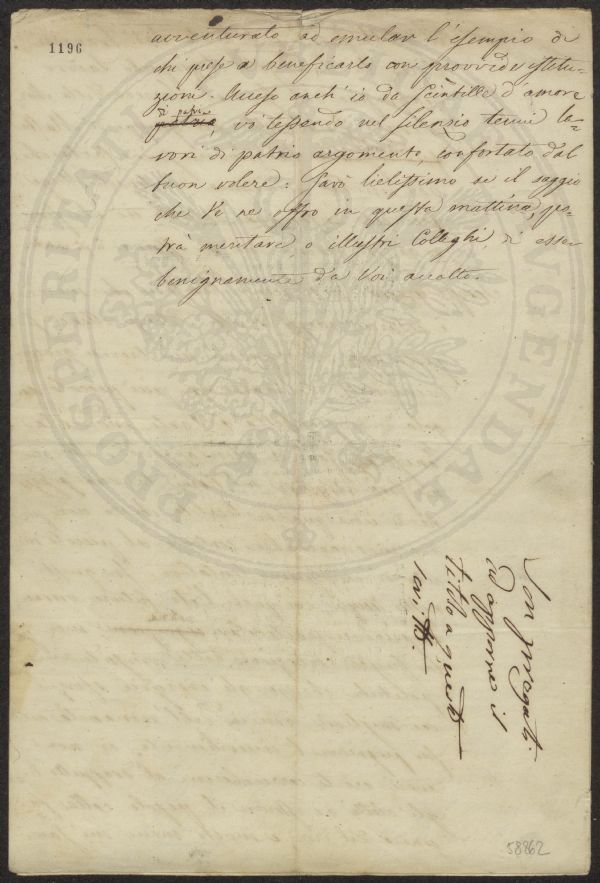 1196
avventurato ad emular l'esempio di
chi prese a beneficarlo con provvide istitu-
zioni. Acceso anch'io da scintille d'amore
di patria
patrio, vo tessendo nel silenzio tenui la-
vori di patrio argomento, confortato dal
buon volere: Sarò lietissimo se il saggio
che Vi ne offro in questa mattina, po-
trà meritare o illustri Colleghi di esser
benignamente da Voi accolto.
Son pregati
ad apporre il
titolo a questo
58862
PROSPERITATI AUGENDAE